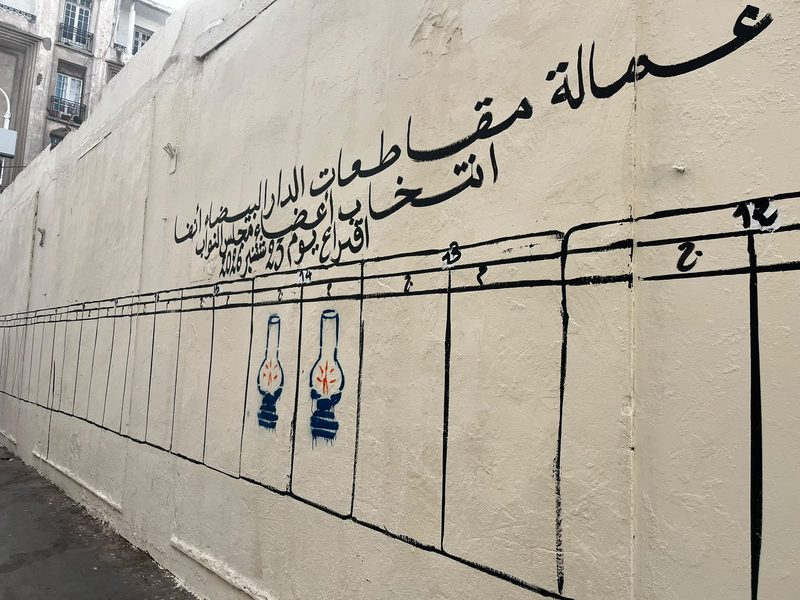 عمالة مقاطعات الدار البيضاء أنفا
انتخاب أعضاء مجلس النواب
اقتراع يوم 23 شتنبر 2026
12
ج
13
ج
م
14
م
ج